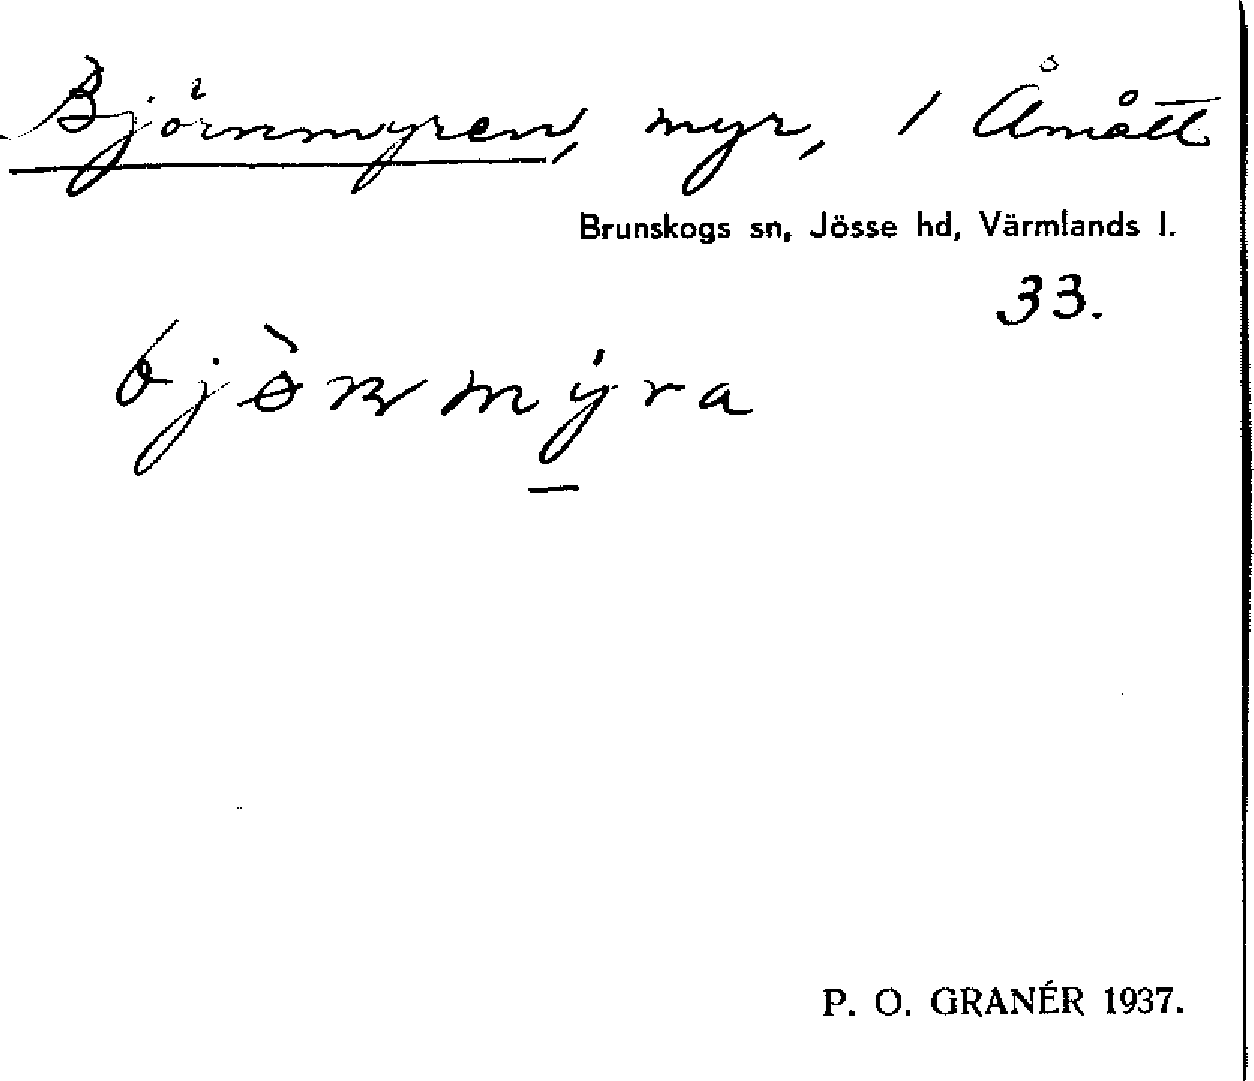 Björnmyren, myr, 1 Åmått
Brunskogs sn, Jösse hd, Värmlands l.
33.
bjòn mýra
P. O. GRANÉR 1937.